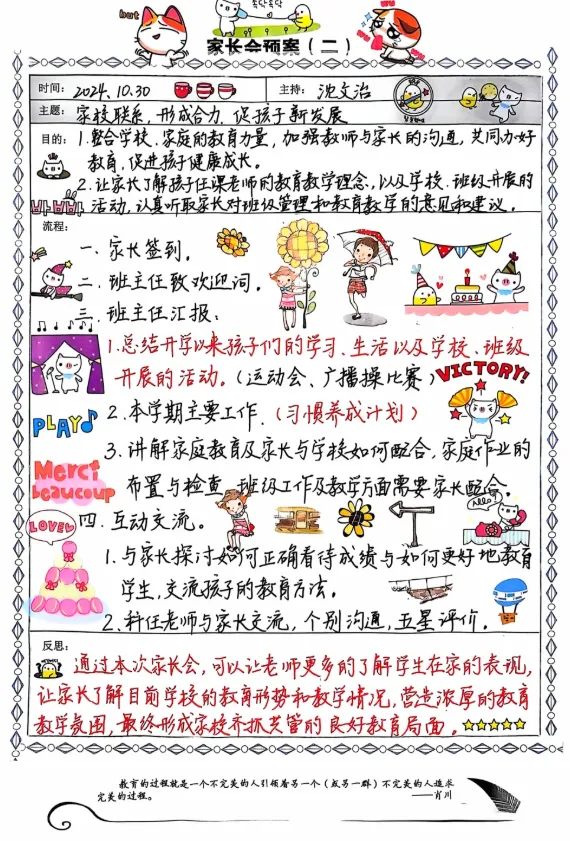 but
家长会预案（二）
时间：2024.10.30 主持：沈文治
主题：家校联系，形成合力，促孩子新发展
目的：1.整合学校、家庭的教育力量，加强教师与家长的沟通，共同办好
教育，促进孩子健康成长。
2.让家长了解孩子任课老师的教育教学理念，以及学校、班级开展的
活动，认真听取家长对班级管理和教育教学的意见和建议。
流程：
一、家长签到。
二、班主任致欢迎词。
三、班主任汇报：
1.总结开学以来孩子们的学习、生活以及学校、班级
开展的活动。（运动会、广播操比赛）
VICTORY!
2.本学期主要工作.（习惯养成计划）
PLAY
3.讲解家庭教育及家长与学校如何配合，家庭作业的
布置与检查，班级工作及教学方面需要家长配合
Merci
beaucoup
四.互动交流。
LOVE
1.与家长探讨如何正确看待成绩与如何更好地教育
学生，交流孩子的教育方法。
2.科任老师与家长交流，个别沟通，五星评价.
反思：
通过本次家长会，可以让老师更多的了解学生在家的表现，
让家长了解目前学校的教育形势和教学情况，营造浓厚的教育
教学氛围，最终形成家校齐抓共管的良好教育局面。
教育的过程就是一个不完美的人引领着另一个（或另一群）不完美的人追求
完美的过程。 ——肖川